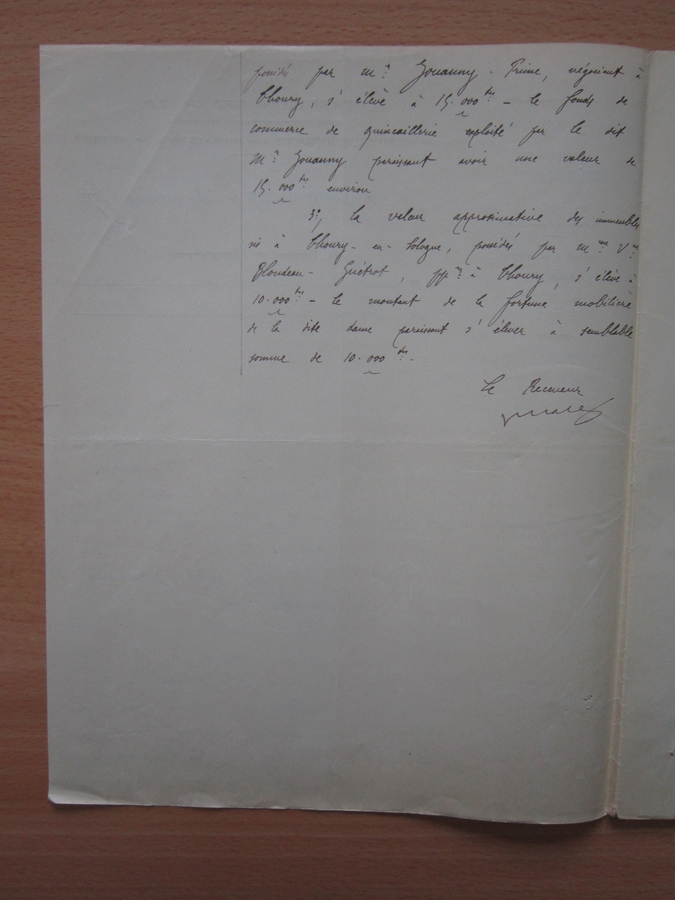 possédés par Mr Jouanny-Prime, négociant à
Choury, s'élève à 15.000 frs - le fonds de
commerce de quincaillerie exploité par le dit
Mr Jouanny paraissant avoir une valeur de
15.000 frs environ
3°, la valeur approximative des immeubles
sis à Choury-en-Sologne, possédés par Mme Vve
Guétrot, ppre à Choury, s'élève à
10.000 frs - le montant de la fortune mobilière
de la dite dame paraissant s'élever à semblable
somme de 10.000 frs -
Le Receveur